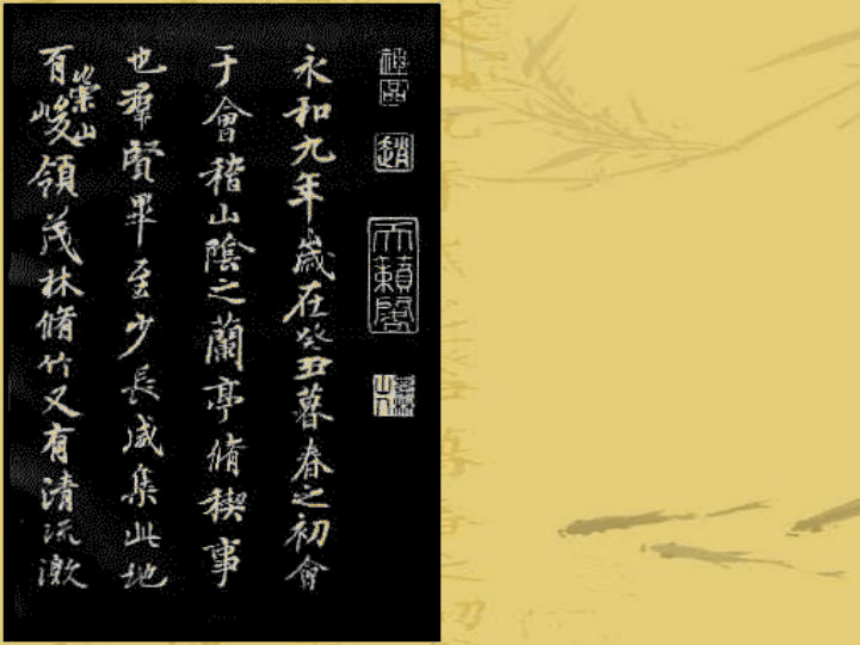 神品
趙
天籟閣
永和九年歲在癸丑暮春之初會
于會稽山陰之蘭亭脩稧事
也羣賢畢至少長咸集此地
有崇山峻領茂林脩竹又有清流激